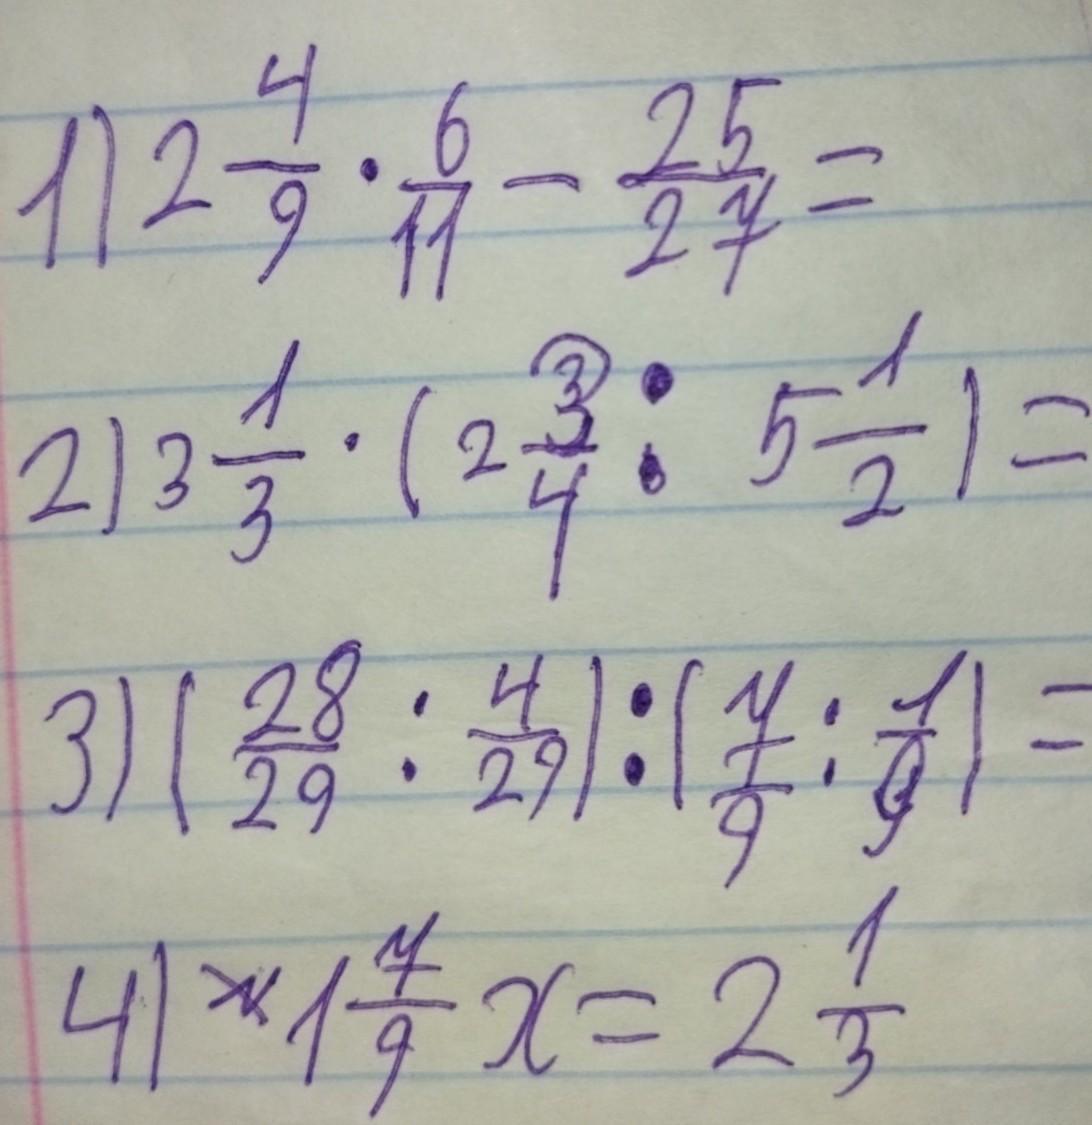 1) 2 4/9 · 6/11 - 25/27 =
2) 3 1/3 · (2 3/4 : 5 1/2) =
3) (28/29 : 4/29) : (7/9 : 1/9) =
4) 1 7/9 x = 2 1/3